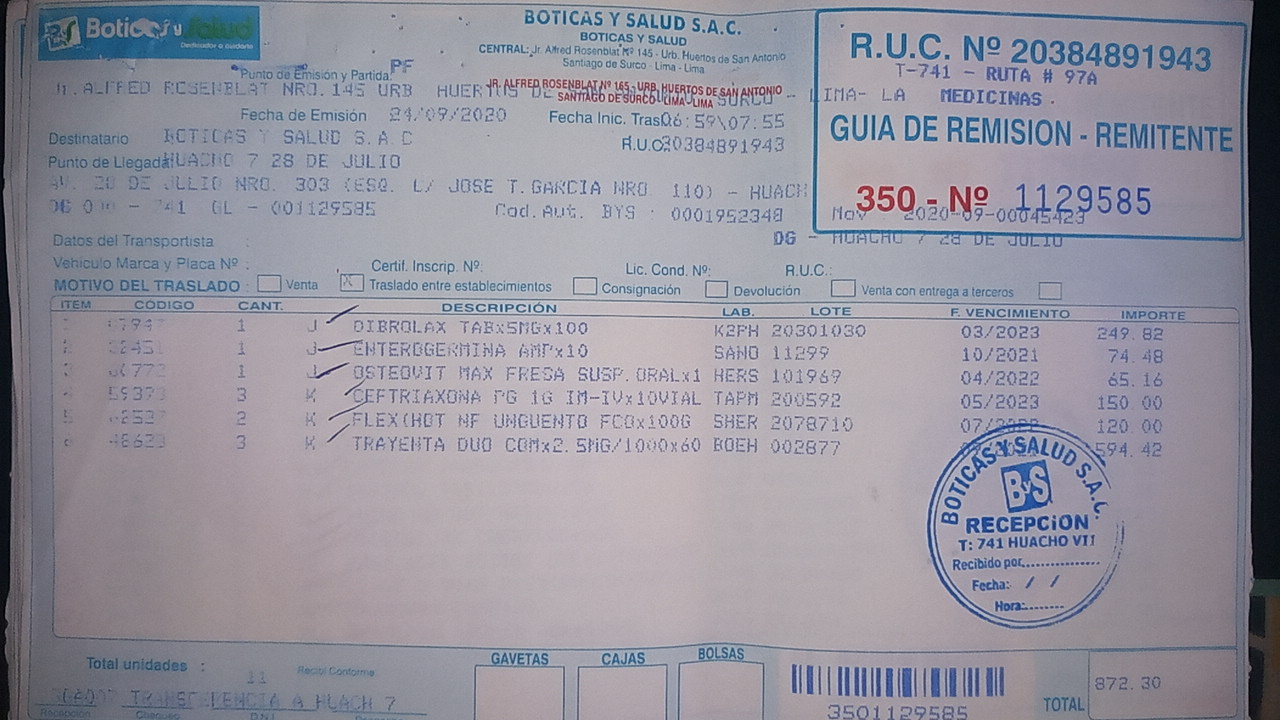 Boticas y Salud
Dedicados a cuidarte
BOTICAS Y SALUD S.A.C.
BOTICAS Y SALUD
CENTRAL: Jr. Alfred Rosenblat Nº 145 - Urb. Huertos de San Antonio
Santiago de Surco - Lima - Lima
JR. ALFRED ROSENBLAT Nº 165 - URB. HUERTOS DE SAN ANTONIO
SANTIAGO DE SURCO - LIMA - LIMA
R.U.C. Nº 20384891943
T-741 - RUTA # 97A
MEDICINAS.
GUIA DE REMISION - REMITENTE
350 - Nº 1129585
Nov 2020-09-00045423
Punto de Emisión y Partida: PF
Jr. ALFRED ROSENBLAT NRO. 145 URB HUERTOS DE SURCO - LIMA- LA
Fecha de Emisión 24/09/2020 Fecha Inic. Tras 06:59\07:55
Destinatario BOTICAS Y SALUD S.A.C R.U.C. 20384891943
Punto de Llegada HUACHO 7 28 DE JULIO
AV. 28 DE JULIO NRO. 303 (ESQ. L/ JOSE T.GARCIA NRO 110) - HUACH
GL - 001129585 Cod.Aut. BYS : 0001952348
DG - HUACHO 7 28 DE JULIO
Datos del Transportista :
Vehiculo Marca y Placa Nº : Certif. Inscrip. Nº: Lic. Cond. Nº: R.U.C.:
MOTIVO DEL TRASLADO: Venta X Traslado entre establecimientos Consignación Devolución Venta con entrega a terceros
ITEM CÓDIGO CANT. DESCRIPCIÓN LAB. LOTE F. VENCIMIENTO IMPORTE
1 J DIBROLAX TABx5MGx100 K2PH 20301030 03/2023 249.82
2 1 J ENTEROGERMINA AMPx10 SANO 11299 10/2021 74.48
3 1 J OSTEOVIT MAX FRESA SUSP.ORALx1 HERS 101969 04/2022 65.16
59373 3 K CEFTRIAXONA PG 1G IM-IVx10VIAL TAPM 200592 05/2023 150.00
5 2 K FLEXIHOT NF UNGUENTO FCOx100G SHER 2078710 120.00
48623 3 K TRAYENTA DUO COMx2.5MG/1000x60 BOEH 002877 594.42
BOTICAS Y SALUD S.A.C.
ByS
RECEPCiON
T: 741 HUACHO VII
Recibido por
Fecha: / /
Hora:
Total unidades : 11 Recibi Conforme
TRANSFERENCIA A HUACH 7
GAVETAS CAJAS BOLSAS
3501129585
TOTAL 872.30